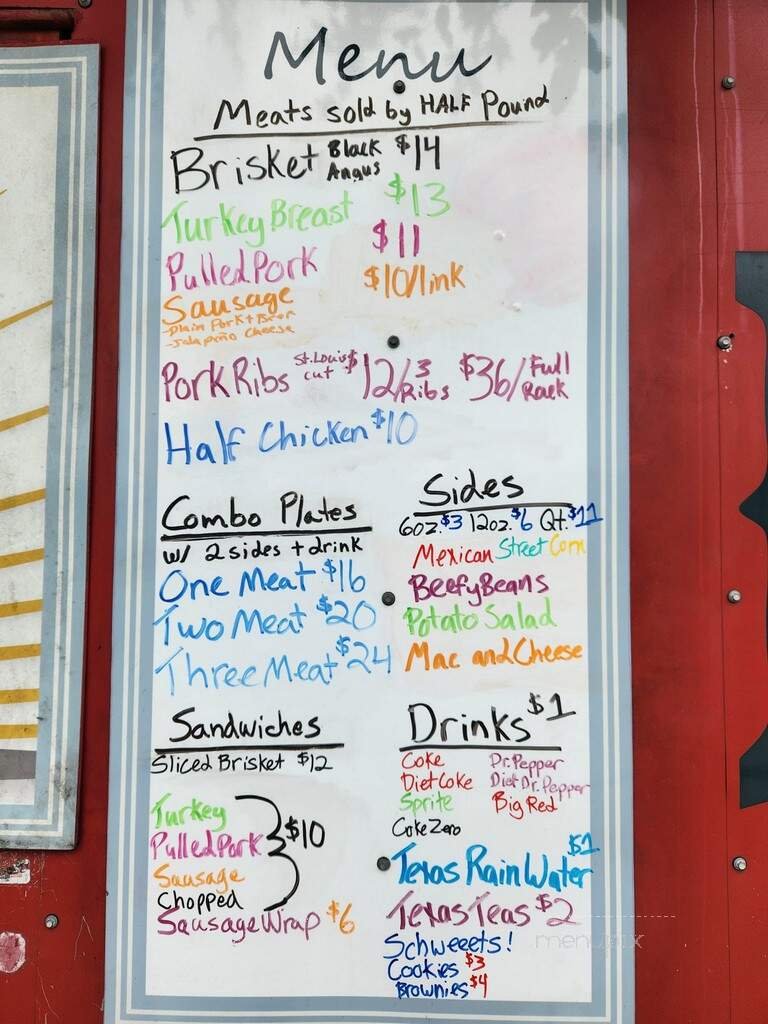 Menu
Meats sold by HALF Pound
Brisket Black Angus $14
Turkey Breast $13
Pulled Pork $11
Sausage $10/link
-Plain Pork + Beef
-Jalapeño Cheese
Pork Ribs St. Louis cut $12/3 Ribs $36/Full Rack
Half Chicken $10
Combo Plates
w/ 2 sides + drink
One Meat $16
Two Meat $20
Three Meat $24
Sides
6oz. $3 12oz. $6 Qt. $11
Mexican Street Corn
Beefy Beans
Potato Salad
Mac and Cheese
Sandwiches
Sliced Brisket $12
Turkey
Pulled Pork
Sausage
Chopped
$10
Sausage Wrap $6
Drinks $1
Coke Dr. Pepper
Diet Coke Diet Dr. Pepper
Sprite Big Red
Coke Zero
Texas Rain Water $1
Texas Teas $2
Schweeets!
Cookies $3
Brownies $4
menupix